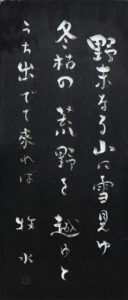 野末なる山に雪見ゆ
冬枯の荒野を越ゆと
うち出でて来れば 牧水